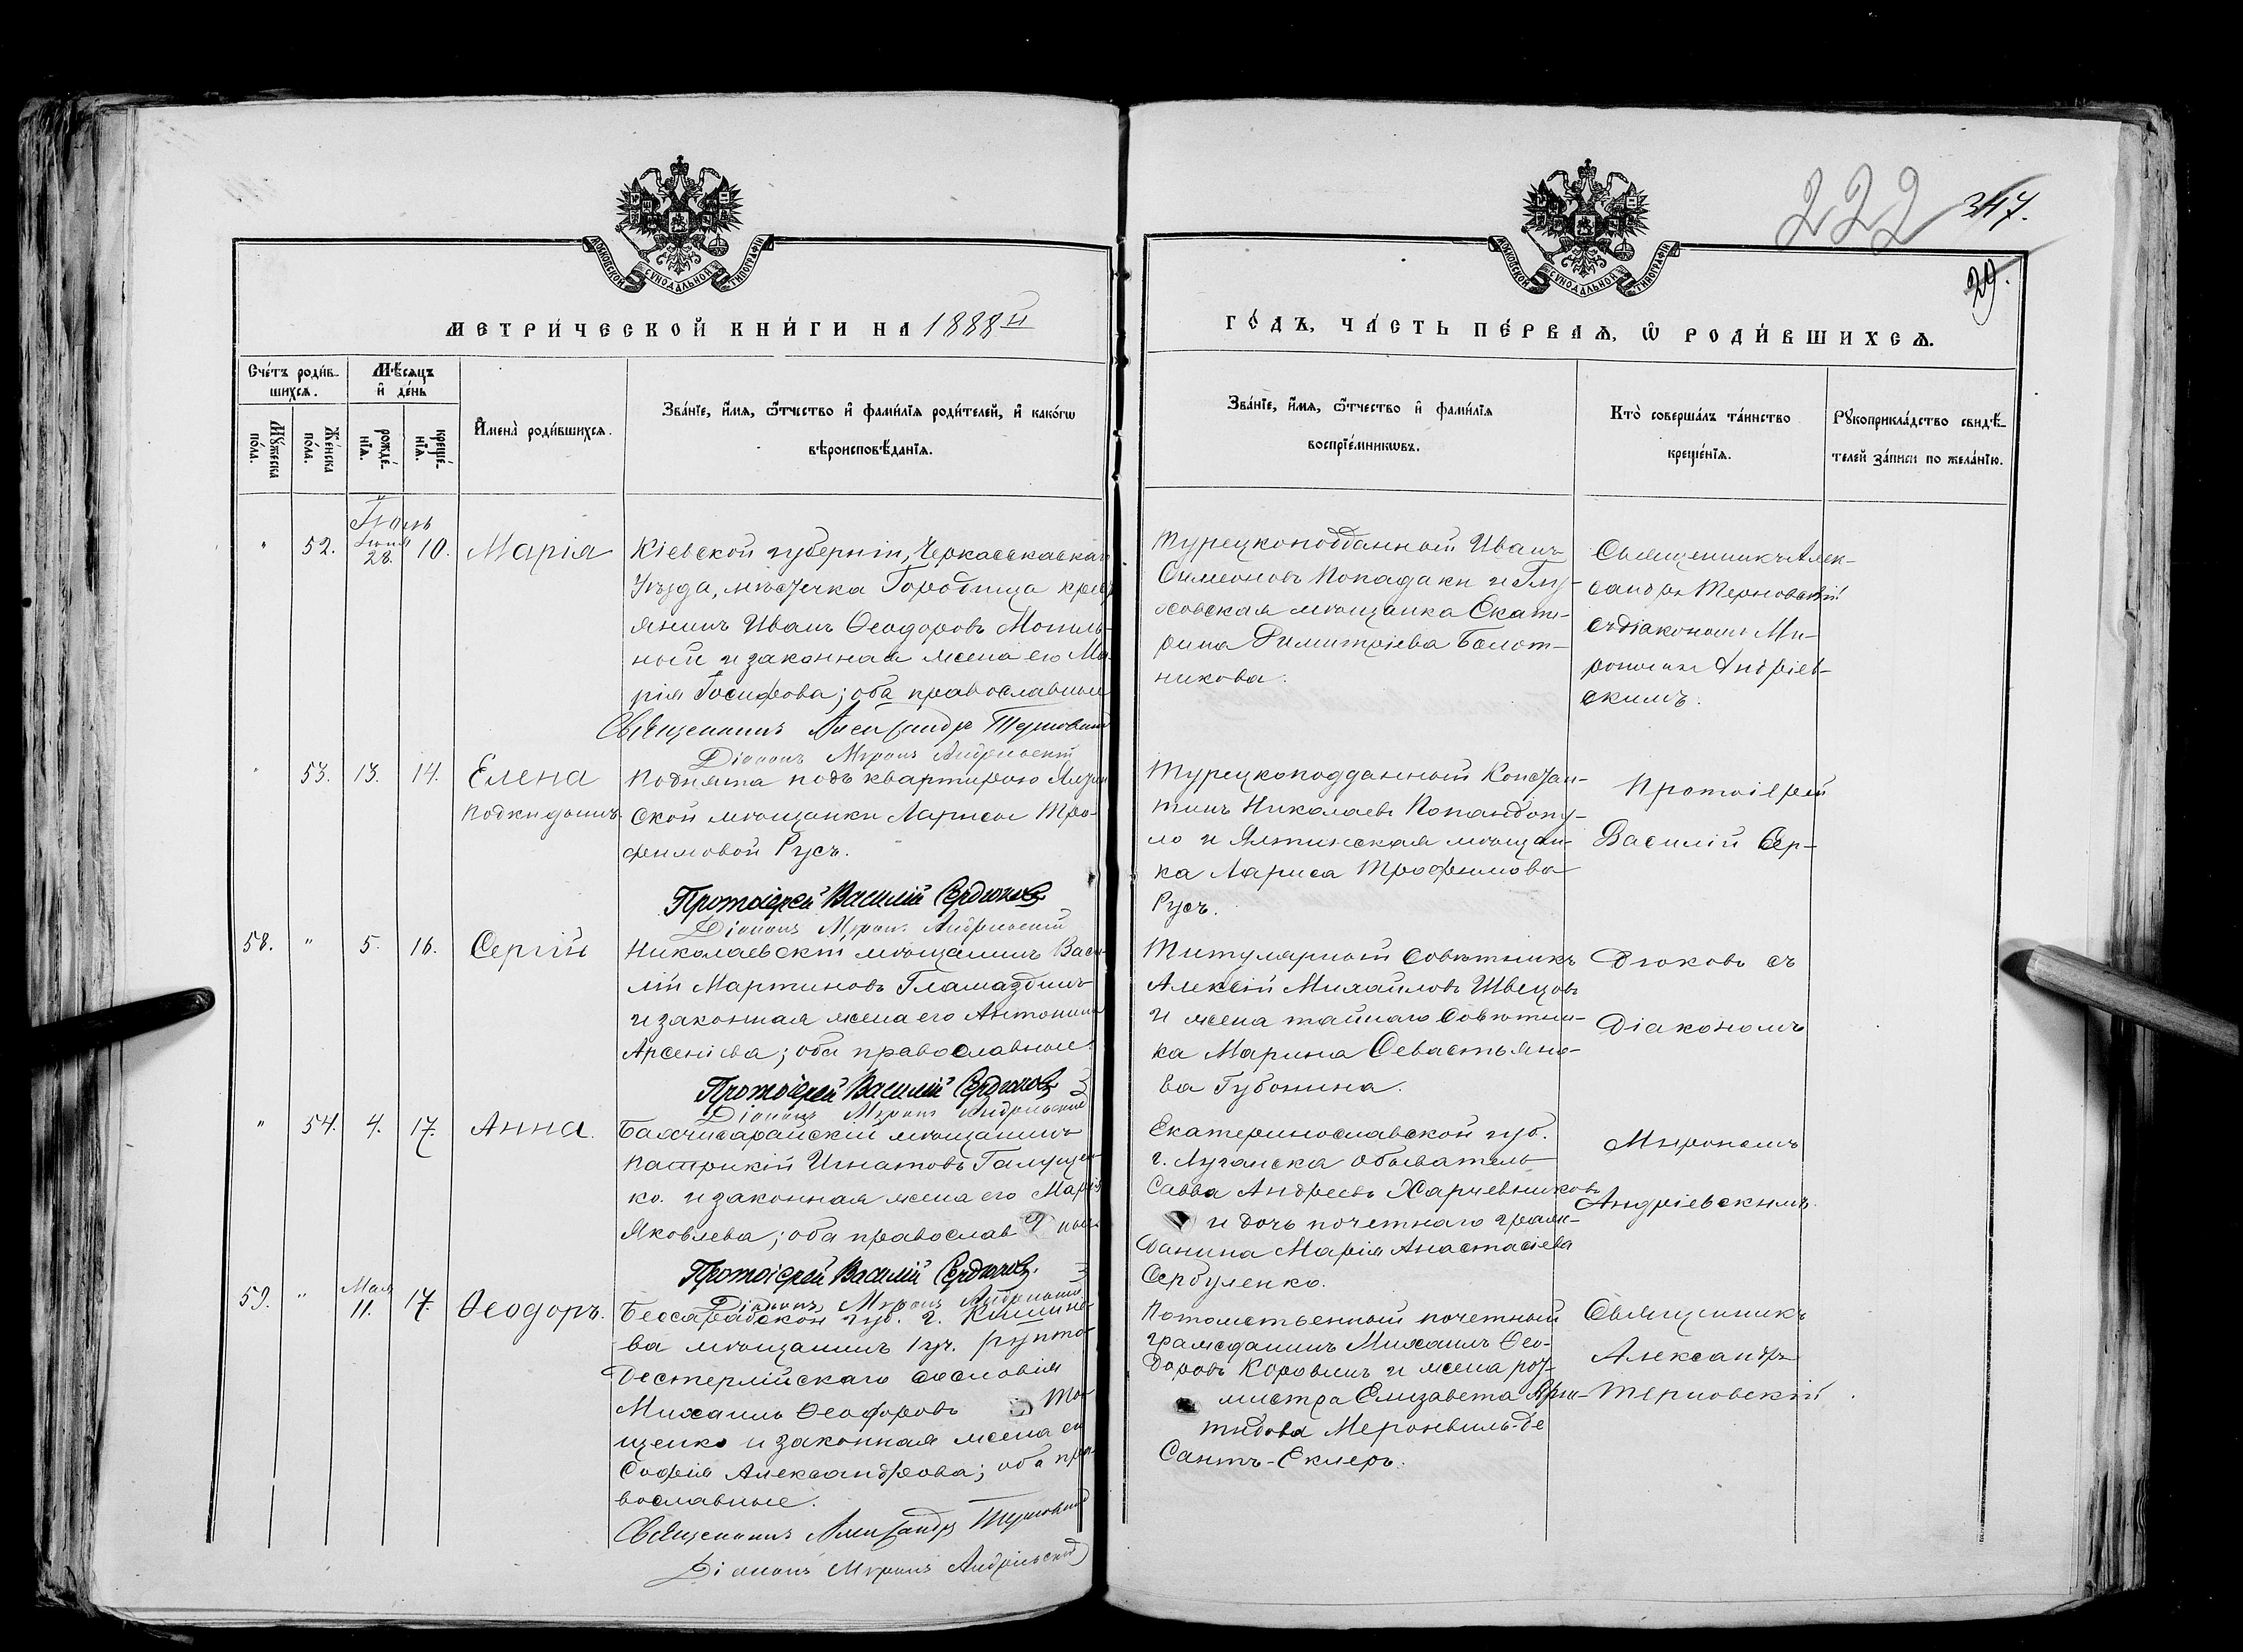 222 347.
29.
МОСКОВСКОЙ СУНОДАЛЬНОЙ ТИПОГРАФІИ
МОСКОВСКОЙ СУНОДАЛЬНОЙ ТИПОГРАФІИ
МЕТРИ́ЧЕСКОЙ КНИ́ГИ НА 1888й
ГО́ДЪ, ЧА́СТЬ ПЕ́РВАѦ, Ѡ҆ РОДИ́ВШИХСѦ.
Сче́тъ роди́в-
шихсѧ.
Мꙋ́жеска
по́ла.
Же́нска
по́ла.
Мѣ́сѧцъ
и҆ де́нь
рожде́-
нїѧ.
креще́-
нїѧ.
И҆мена̀ роди́вшихсѧ.
Зва́нїе, и҆́мѧ, ѻ҆́тчество и҆ фами́лїѧ роди́телей, и҆ како́гѡ
вѣроисповѣ́данїѧ.
Зва́нїе, и҆́мѧ, ѻ҆́тчество и҆ фами́лїѧ
воспрїе́мникѡвъ.
Кто̀ соверша́лъ та́инство
креще́нїѧ.
Рꙋкоприкла́дство свидѣ́-
телей за́писи по жела́нїю.
" 52. Іюня 28. Іюль 10. Марія
Кіевской губерніи, Черкасскаго
Уѣзда, мѣстечка Городища крест
янинъ Иванъ Ѳеодоровъ Мотиль-
ный и законная жена его Ма-
рія Іосифова; оба православные
Священникъ Александръ Терновскій
Діаконъ Миронъ Андріевскій
Турецкоподданный Иванъ
Симеоновъ Попадаки и Глу-
ховская мѣщанка Екате-
рина Димитріева Болот-
никова.
Священникъ Алек-
сандръ Терновскій
съ діакономъ Ми-
рономъ Андріев-
скимъ.
" 53. 13. 14. Елена
подкидышъ.
Поднята подъ квартирою Ялтин
ской мѣщанки Ларисы Тро-
фимовой Русъ.
Протоіерей Василій Сердюковъ
Діаконъ Миронъ Андріевскій
Турецкоподданный Констан-
тинъ Николаевъ Попандопу-
ло и Ялтинская мѣщан-
ка Лариса Трофимова
Русъ.
Протоіерей
Василій Сер-
58. " 5. 16. Сергій
Николаевскій мѣщанинъ Васи-
лій Мартиновъ Гламаздинъ
и законная жена его Антонина
Арсеніева; оба православные.
Протоіерей Василій Сердюковъ
Діаконъ Миронъ Андріевскій
Титулярный Совѣтникъ
Алексій Михайловъ Швецовъ
и жена тайнаго Совѣтни-
ка Марина Севастьяно-
ва Губонина.
дюковъ съ
Діакономъ
" 54. 4. 17. Анна.
Бахчисарайскій мѣщанинъ
Патрикій Игнатовъ Галущен-
ко. и законная жена его Марія
Яковлева; оба православные
Протоіерей Василій Сердюковъ.
Діаконъ Миронъ Андріевскій
Екатеринославской губ.
г. Луганска обыватель
Савва Андреевъ Харчевниковъ
и дочь почетнаго граж-
данина Марія Анастасіева
Сербуленко.
Мирономъ
Андріевскимъ.
59. " Мая 11. 17. Ѳеодоръ.
Бессарабской губ. г. Кишине-
ва мѣщанинъ рупто-
Михаилъ Ѳеодоровъ
щенко и законная жена его
Софія Александрова; оба пра-
вославные.
Священникъ Александръ Терновскій
Діаконъ Миронъ Андріевскій
Потомственный почетный
гражданинъ Михаилъ Ѳео-
доровъ Коровинъ и жена рот-
мистра Елизавета
Меронвиль-де
Сантъ-Еклеръ.
Священникъ
Александръ
Терновскій.